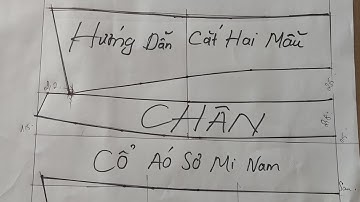 Hướng Dẫn Cắt Hai Mẫu
CHÂN
CỔ Aó Sơ Mi Nam